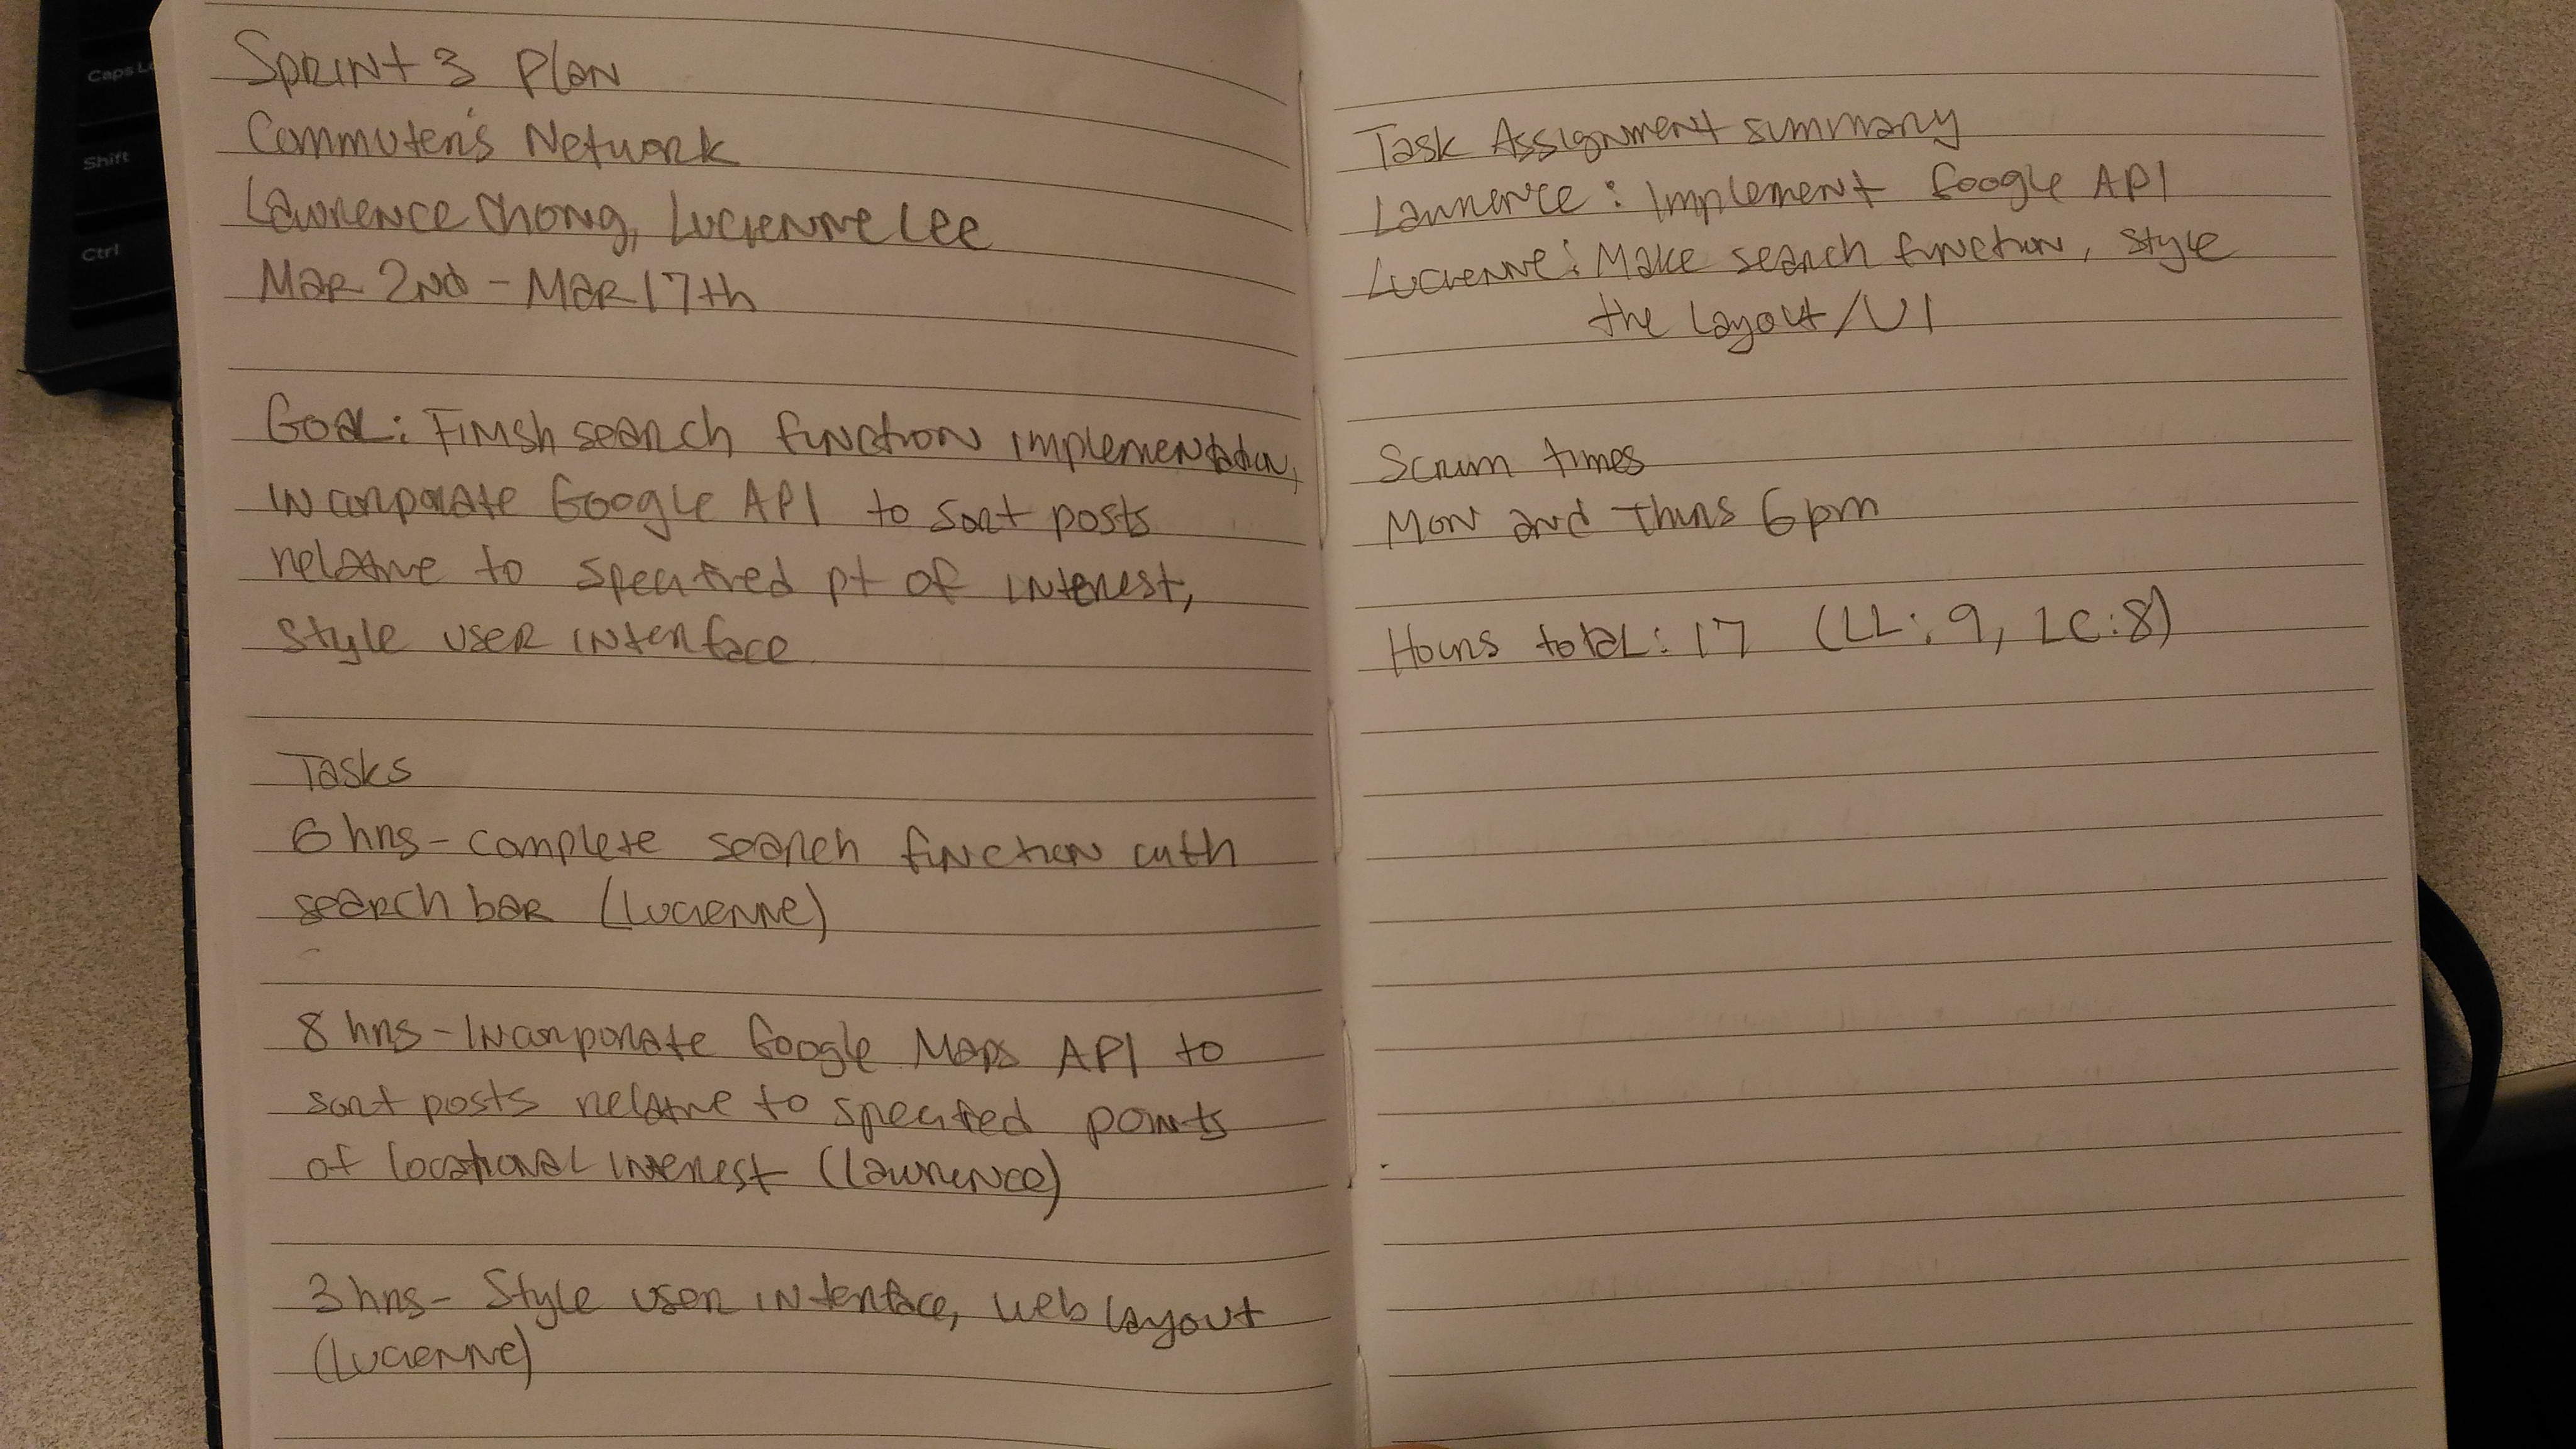 Caps Lo
Shift
Ctrl
Sprint 3 Plan
Commuter's Network
Lawrence Chong, Lucienne Lee
Mar 2nd - Mar 17th
Goal: Finish search function implementation,
incorporate Google API to sort posts
relative to specified pt of interest,
style user interface
Tasks
6 hrs - complete search function with
search bar (Lucienne)
8 hrs - Incorporate Google Maps API to
sort posts relative to specified points
of locational interest (Lawrence)
3 hrs - Style user interface, web layout
(Lucienne)
Task Assignment summary
Lawrence: Implement Google API
Lucienne: Make search function, style
the layout/UI
Scrum times
Mon and Thurs 6pm
Hours total: 17 (LL: 9, LC: 8)